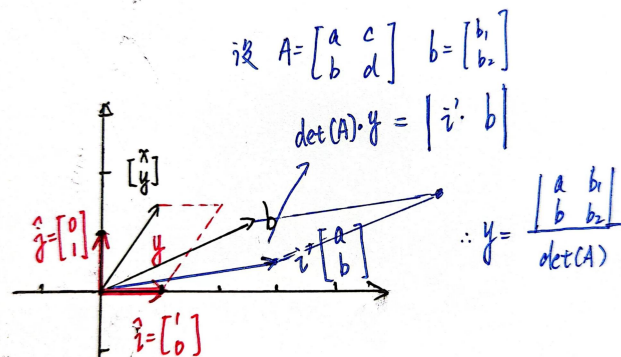 设 A=[a c; b d] b=[b₁; b₂]
det(A)·y = |i' · b|
[x; y]
ĵ=[0; 1]
y
b
i' [a; b]
∴ y= |a b₁; b b₂| / det(A)
î=[1; 0]